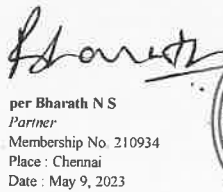 Bharath
per Bharath N S
Partner
Membership No. 210934
Place : Chennai
Date : May 9, 2023